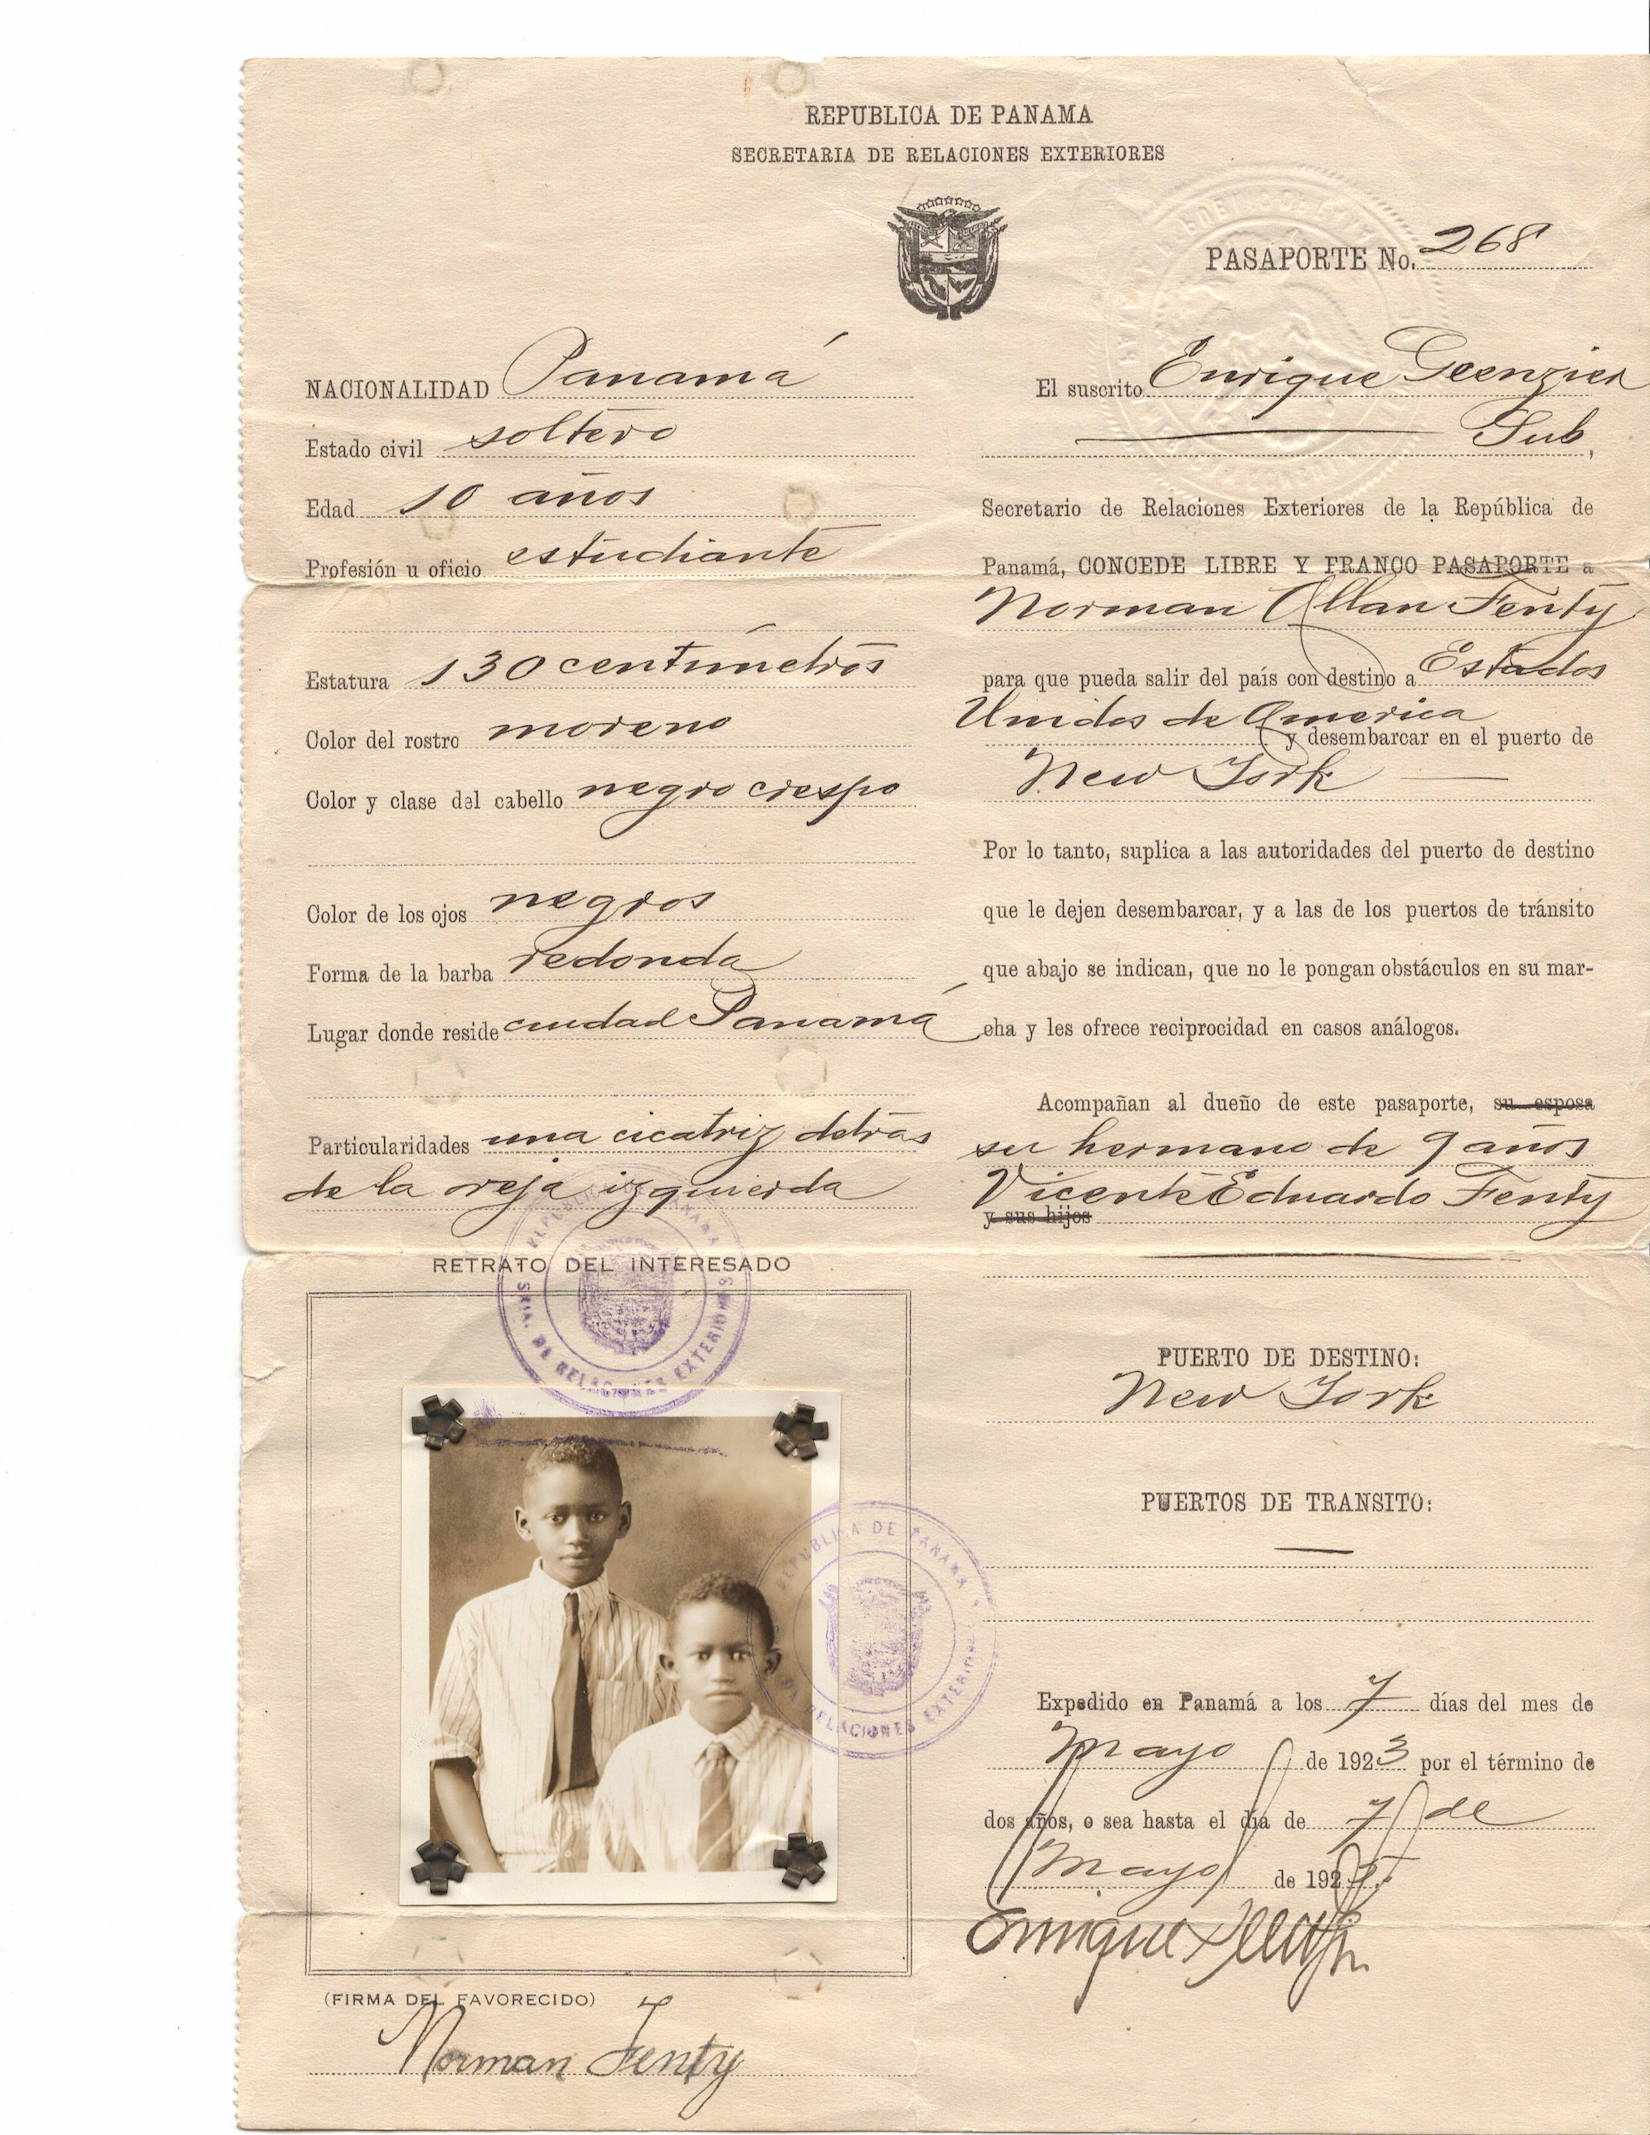 REPUBLICA DE PANAMA
SECRETARIA DE RELACIONES EXTERIORES
PASAPORTE No. 268
NACIONALIDAD Panamá
Estado civil soltero
Edad 10 años
Profesión u oficio estudiante
Estatura 130 centímetros
Color del rostro moreno
Color y clase del cabello negro crespo
Color de los ojos negros
Forma de la barba redonda
Lugar donde reside ciudad Panamá
Particularidades una cicatriz detrás
de la oreja izquierda
RETRATO DEL INTERESADO
REPUBLICA DE PANAMA
SRIA. DE RELACIONES EXTERIORES
REPUBLICA DE PANAMA
DE RELACIONES EXTERIORES
(FIRMA DEL FAVORECIDO)
Norman Fenty
El suscrito Enrique Geenzier
Sub,
Secretario de Relaciones Exteriores de la República de
Panamá, CONCEDE LIBRE Y FRANCO PASAPORTE a
Norman Allan Fenty
para que pueda salir del país con destino a Estados
Unidos de America
y desembarcar en el puerto de
New York
Por lo tanto, suplica a las autoridades del puerto de destino
que le dejen desembarcar, y a las de los puertos de tránsito
que abajo se indican, que no le pongan obstáculos en su mar-
cha y les ofrece reciprocidad en casos análogos.
Acompañan al dueño de este pasaporte, su esposa
su hermano de 9 años
Vicente Eduardo Fenty
y sus hijos
PUERTO DE DESTINO:
New York
PUERTOS DE TRANSITO:
Expedido en Panamá a los 7 días del mes de
Mayo de 1923 por el término de
dos años, o sea hasta el día de 7 de
Mayo de 1925.
Enrique